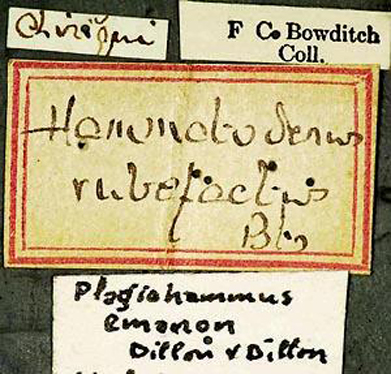 Chiriqui
F C. Bowditch
Coll.
Hammatoderus
rubefactus
Bts
Plagiohammus
emanon
Dillon & Dillon